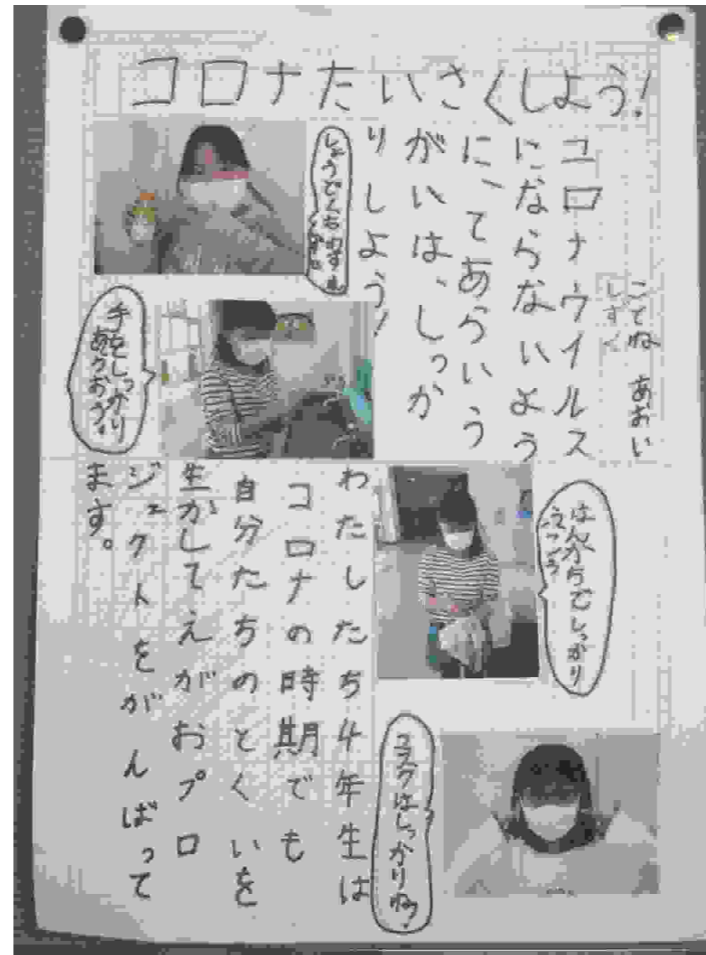 コロナたいさくしよう!
あおい
しずく
コロナウイルス
にならないよう
に、てあらいう
がいは、しっか
りしよう!
手をしっかり
あらおう!
はんかちでしっかり
ふこう
マスクはしっかりね!
わたしたち4年生は
コロナの時期でも
自分たちのとくいを
生かしてえがおプロ
ジェクトをがんばって
ます。